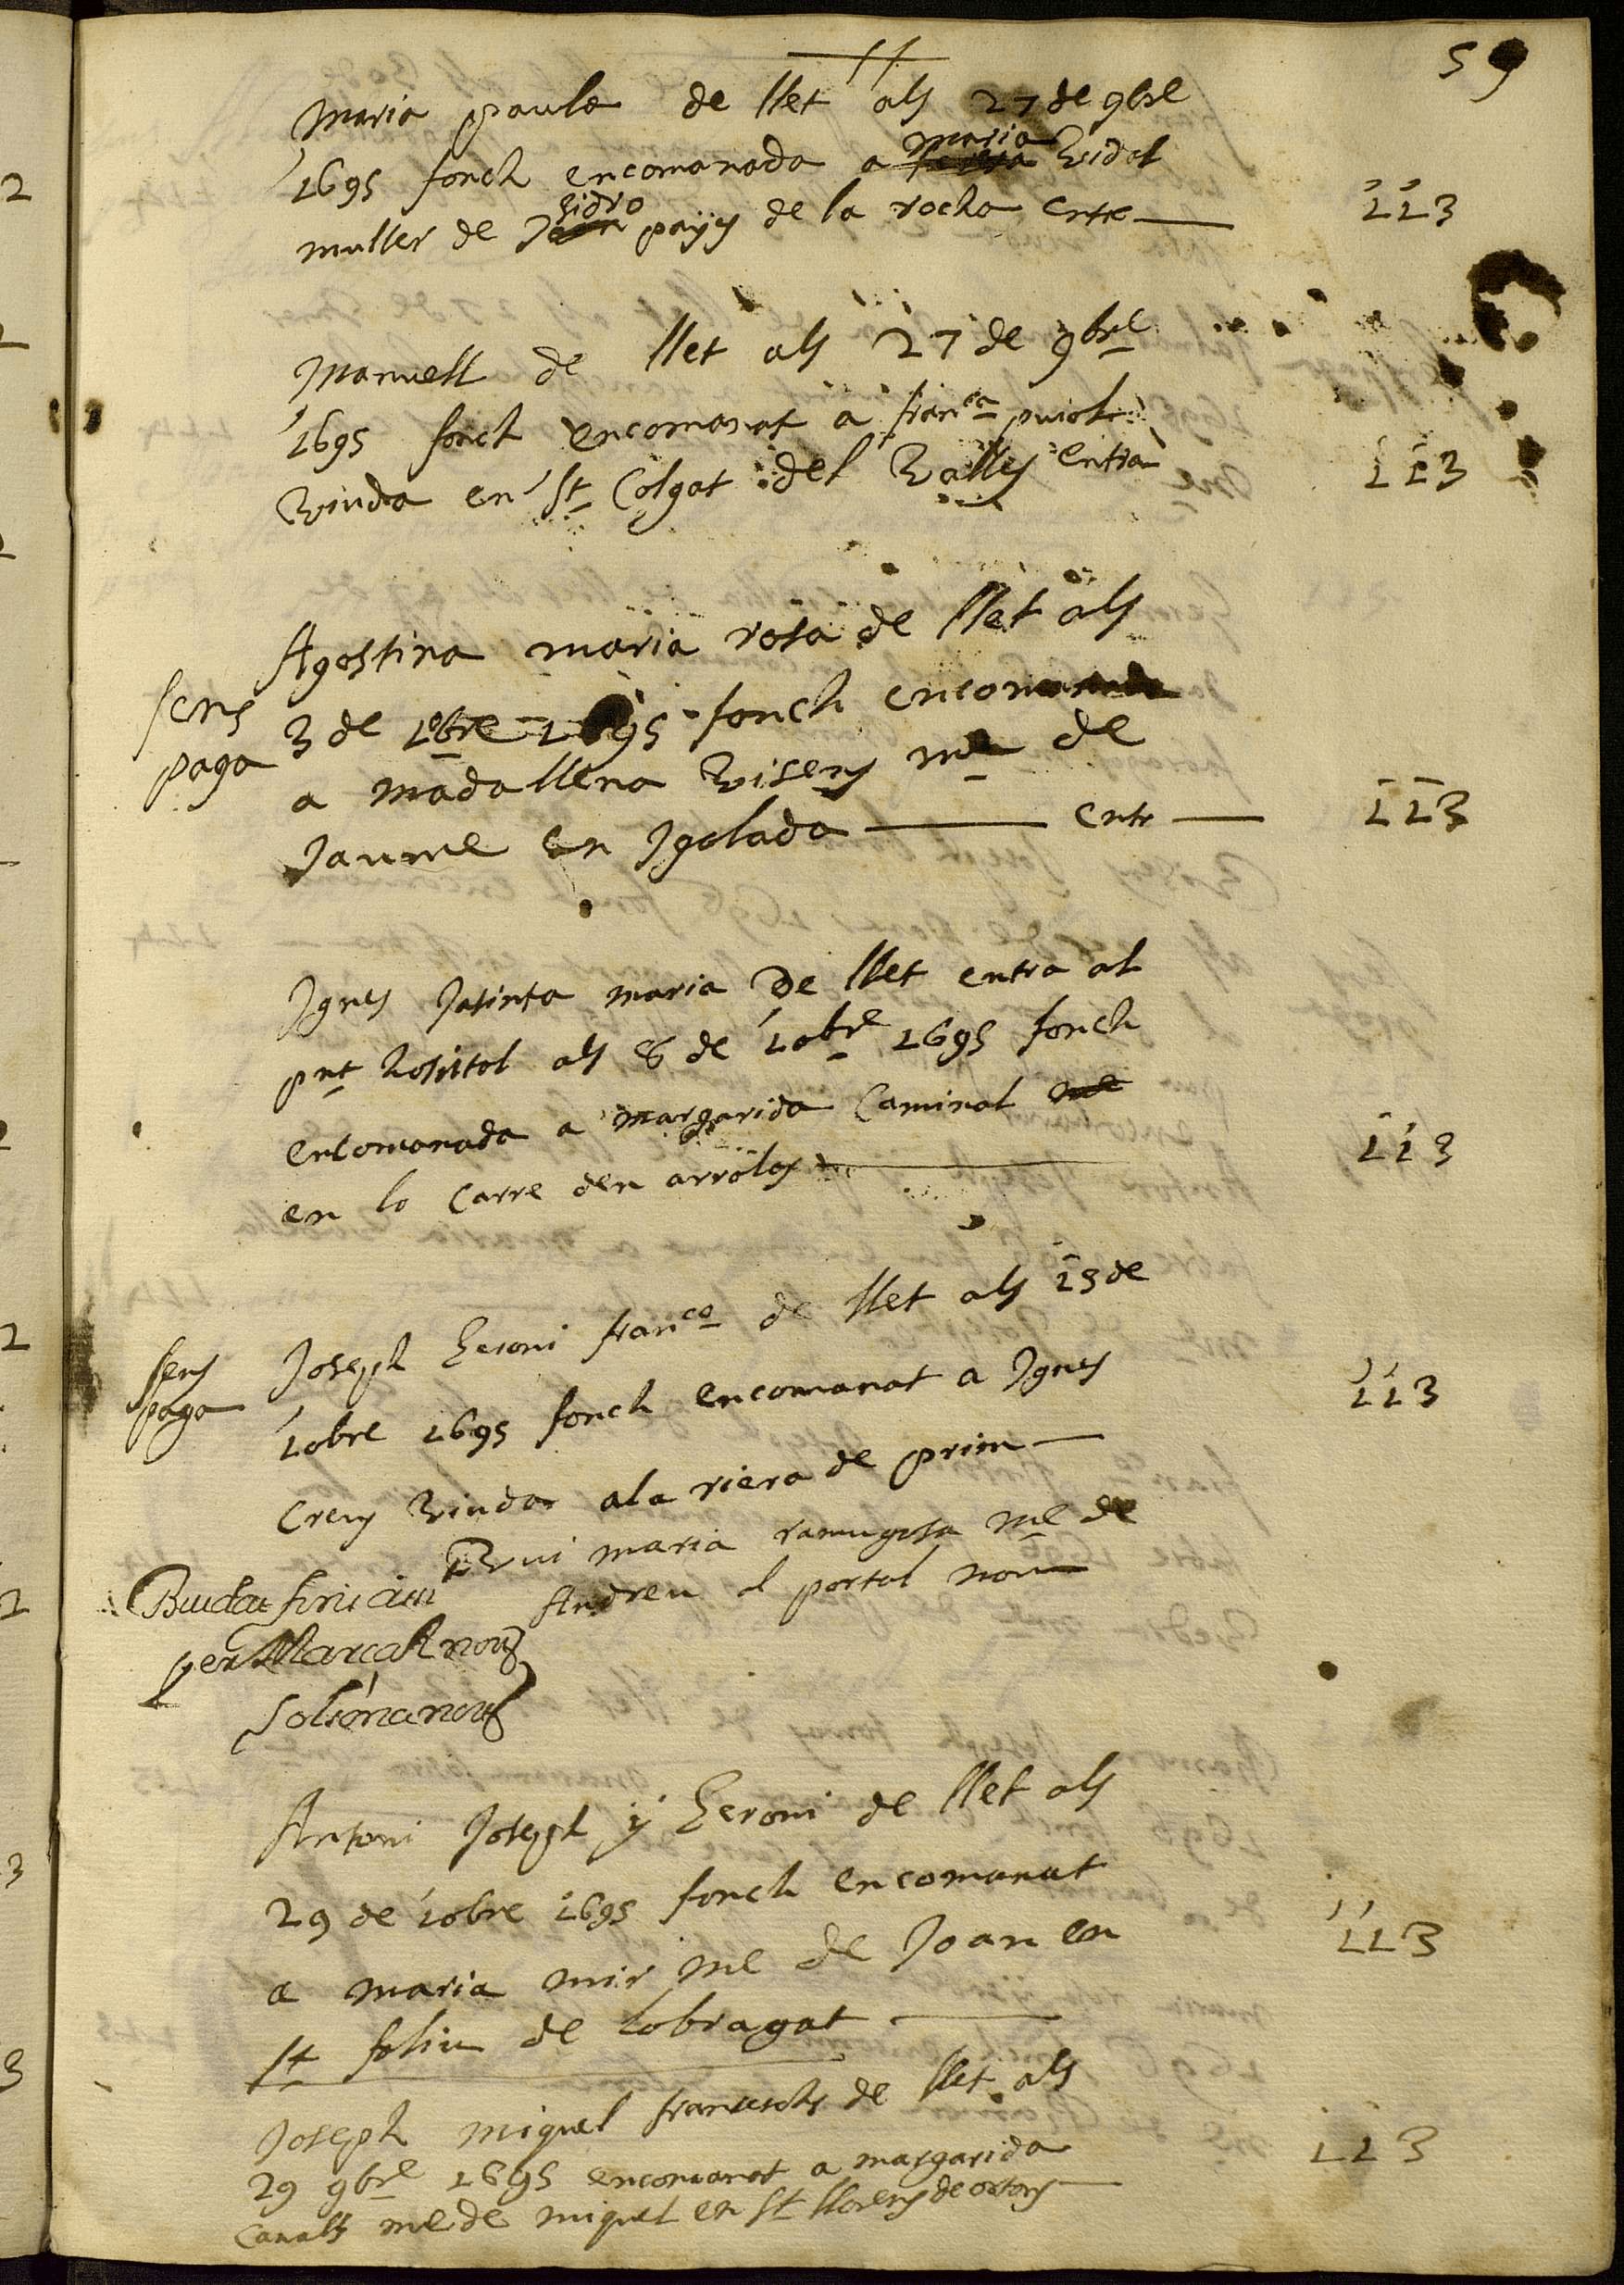 59
Maria paula de llet als 27 de 9bre
1695 fonch encomanada a maria Vidal
muller de Isidro payes de la rocha entre
113
Manuell de llet als 27 de 9bre
1695 fonch encomanat a franca puiol
Viuda en St Colgat del Valles entra
113
Agostina maria rosa de llet als
sens
paga
3 de 10bre 1695 fonch encomanada
a madallena Visens me de
Jaume en Igolada entr
113
Ignes Jasinta maria De llet entra al
pnt hospital als 8 de 10bre 1695 fonch
encomanada a margarida Caminal
en lo carre den arroles
113
sens
paga
Joseph Geroni franco de llet als 15 de
10bre 1695 fonch encomanat a Ignes
113
Creus Viuda a la riera de prim
Vui maria ramugosa me de
Andreu al portal nou
per Marcal nou
Antoni Joseph y Geroni de llet als
29 de 10bre 1695 fonch encomanat
a maria mir me de Joan en
113
St feliu de lobragat
Joseph Miquel fransechs de llet als
29 9bre 1695 encomanat a margarida
113
Canals me de miquel en St llorens de ortons